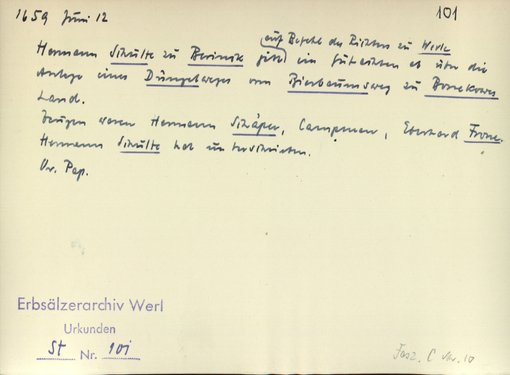 1659 Juni 12
101
auf Befehl des Richters zu Werle
Hermann Schulte zu Berinck gibt ein Gutachten ab über die
Anlage eines Düngeweges vom Bierbaumsweg zu
Land.
Zeugen waren Hermann Schäper, Campman, Eberhard Frone.
Hermann Schulte hat unterschrieben.
Ur. Pap.
Erbsälzerarchiv Werl
Urkunden
St Nr. 101
Fasz. C Nr. 10